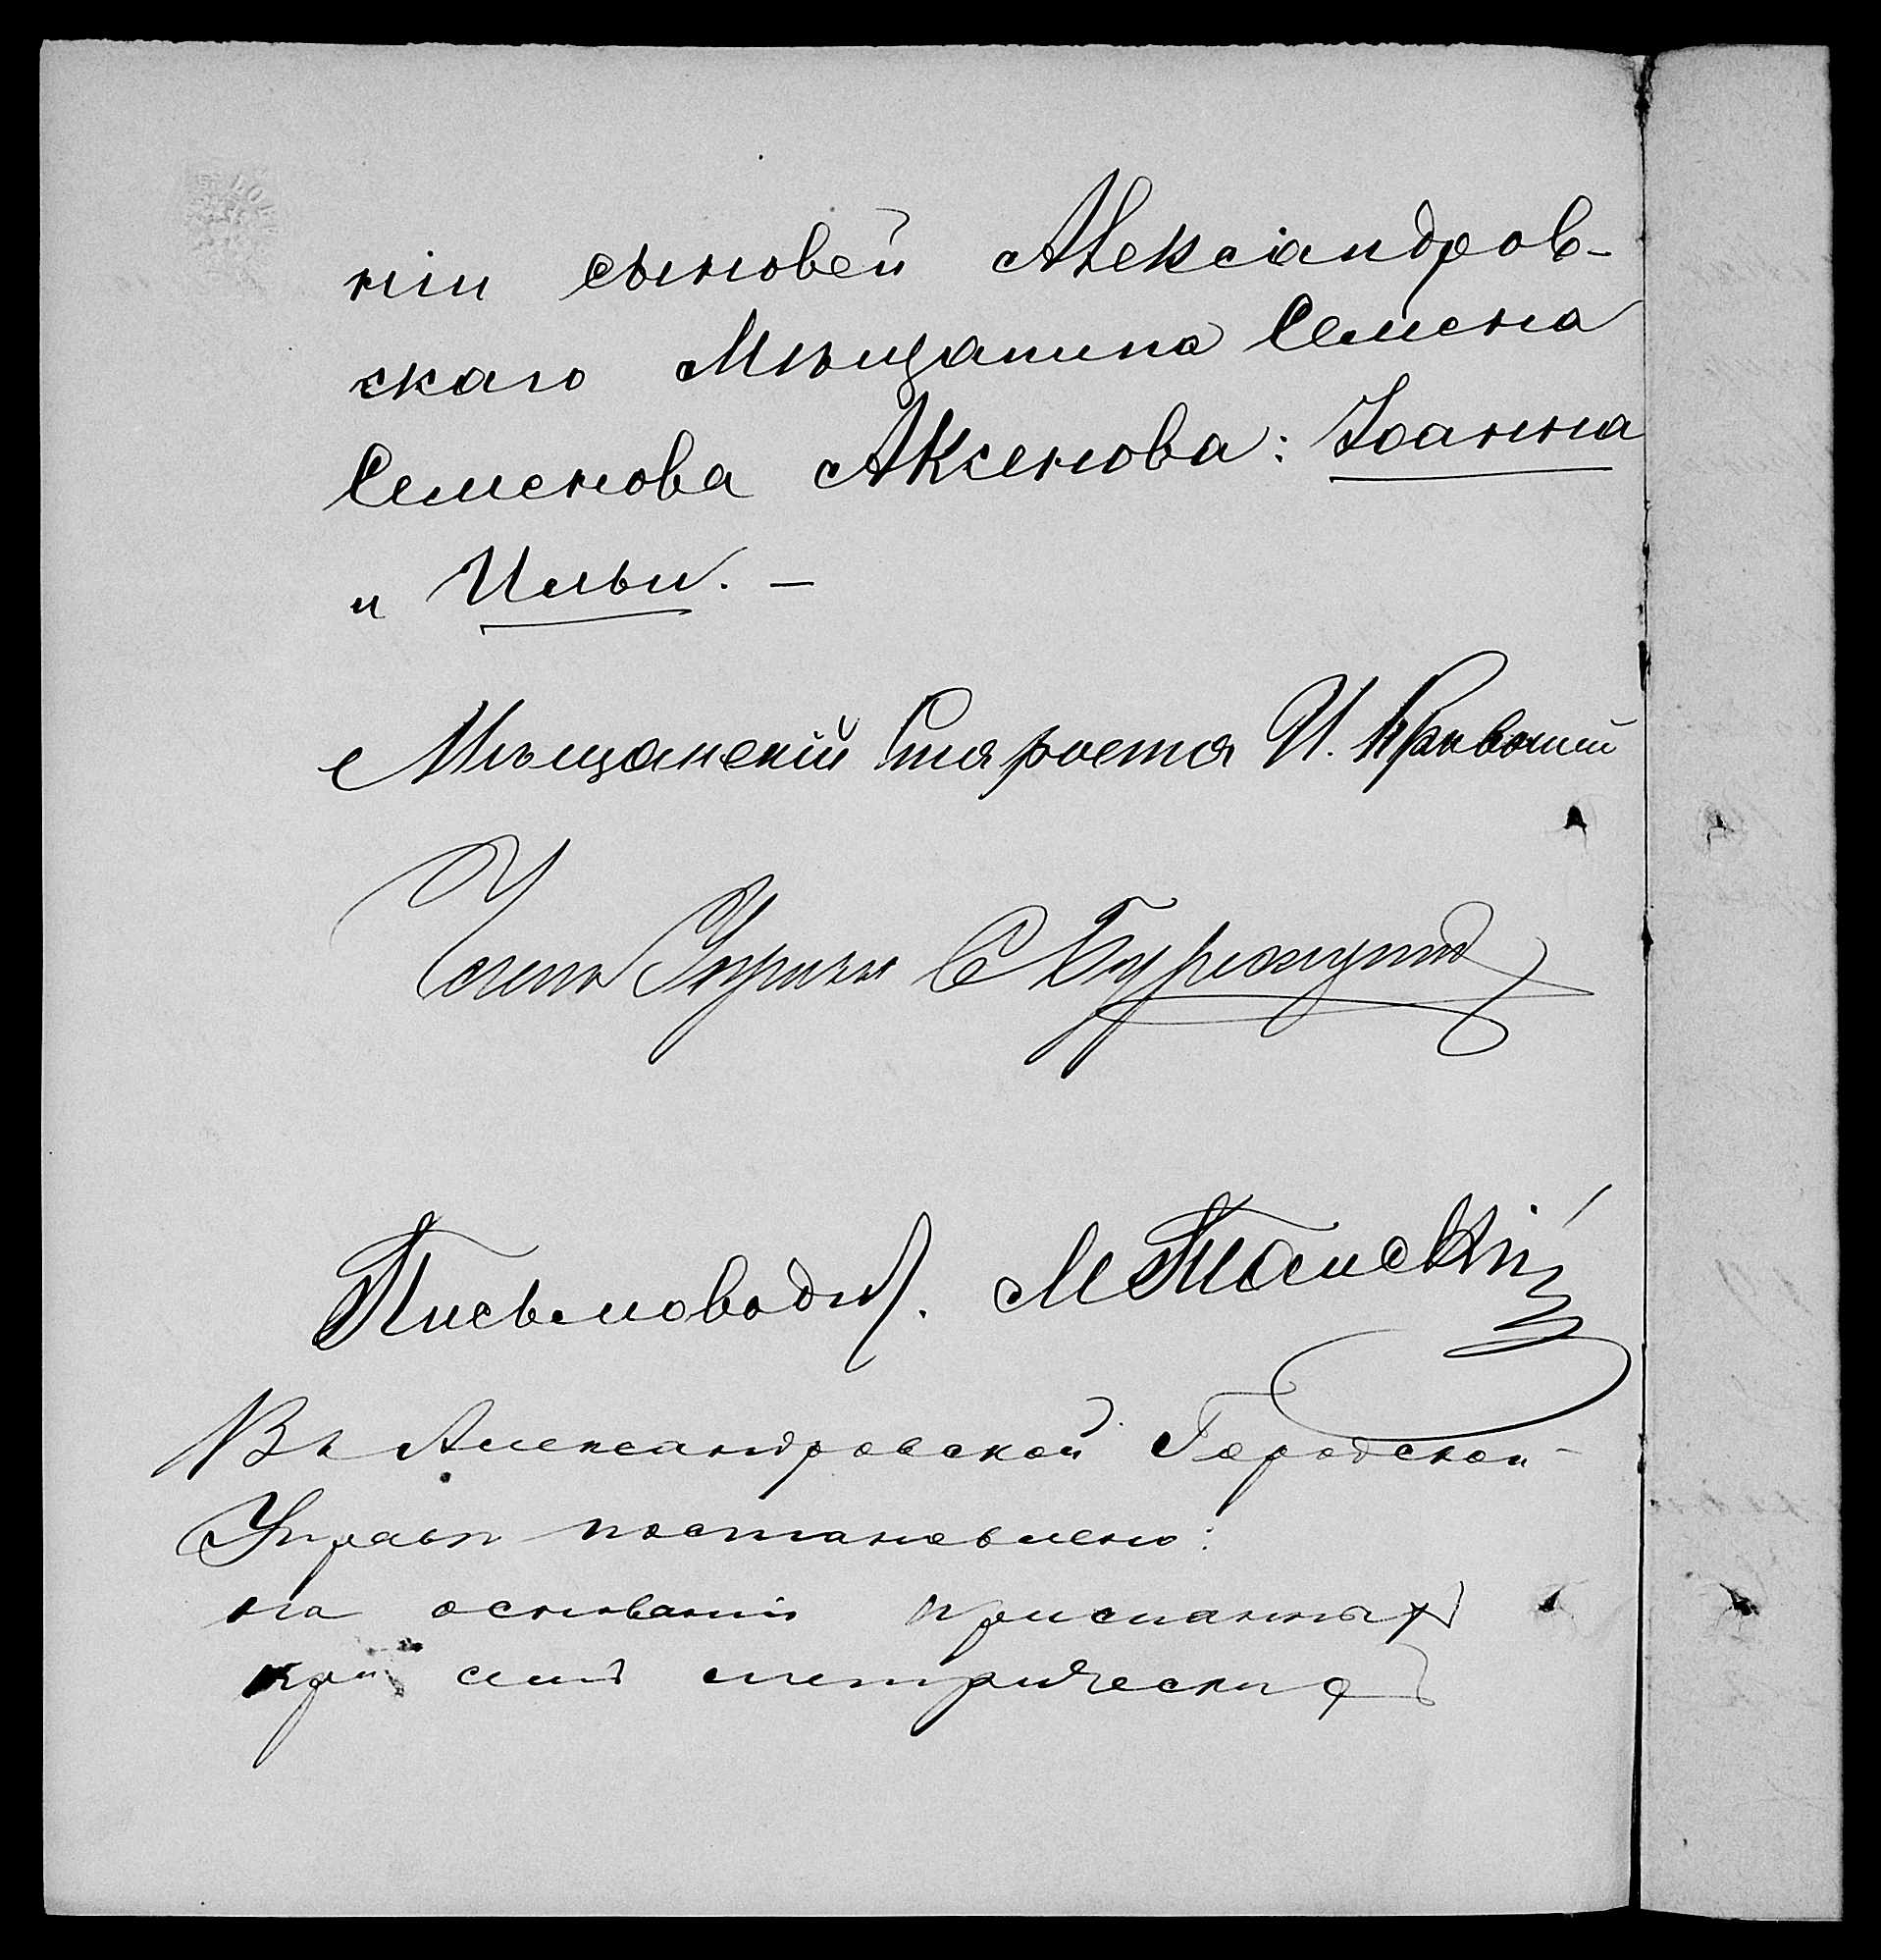 ніи сыновей Александров-
скаго Мѣщанина Семена
Семенова Аксенова: Іоанна
и Ильи. –
Мѣщанскій Староста И.
Членъ Управы С
Письмовод. М
Въ Александровской Городской
Управѣ постановлено:
на основаніи присланныхъ
при семъ метрическихъ